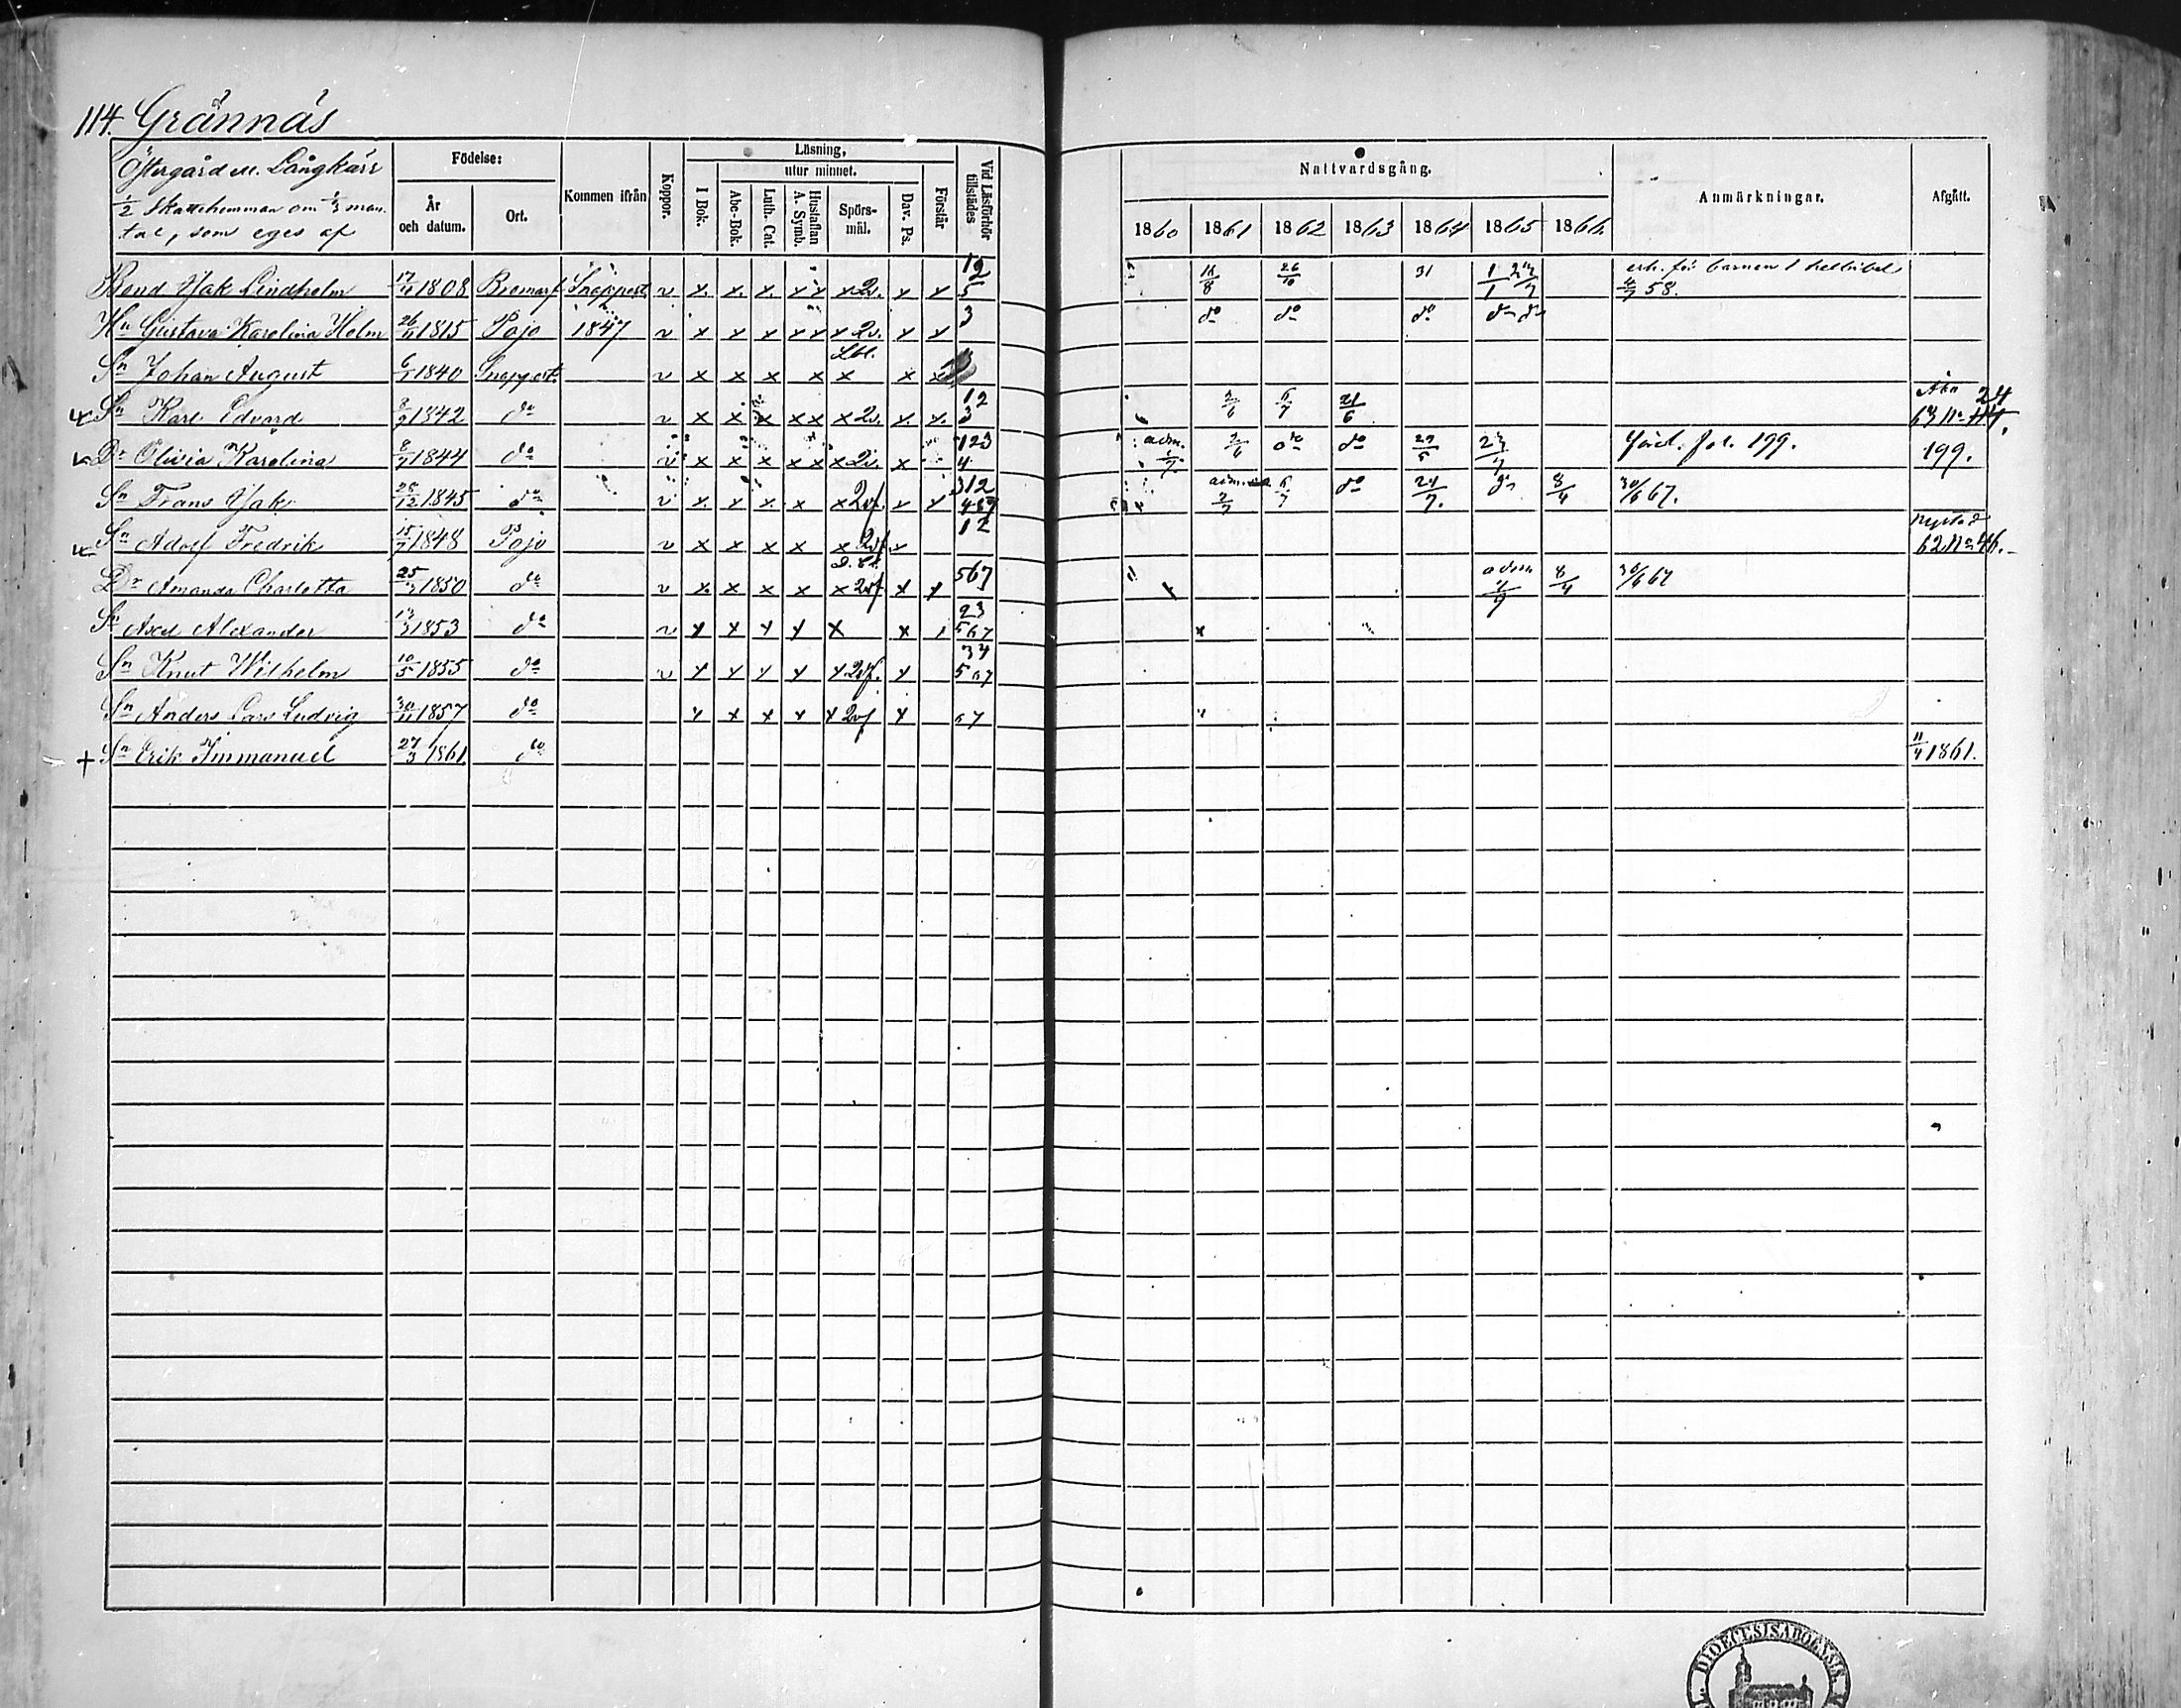 114. Grännäs
Östergård el. Långkärr
1/2 Skattehemman om 1/3 man-
tal, som eges af
Födelse:
År
och datum.
Ort.
Kommen ifrån
Koppor.
Läsning,
utur minnet.
I Bok.
Abc-Bok.
Luth. Cat.
Hustaflan
A. Symb.
Spörs-
mål.
Dav. Ps.
Förstår
Vid Läsförhör
tillstädes
Nattvardsgång.
1860 1861 1862 1863 1864 1865 1866.
Anmärkningar.
Afgått.
Bond Isak Lindholm 1808 Bromarf Snappert. v x. x. x. x x x 2v. x x 12 5 26/10 31 erh. för barnen 1 helbibel
58.
Hn Gustava Karolina Holm 26/11 1815 Pojo 1847 v x x x x x x 2v. x x 3 do do do do do
Sn Johan August 1840 Snappert. v x x x x x x x
Sn Karl Edvard 8/9 1842 do v x x x x x x 2v. x. x. 12 3 6/7 21/6 Åbo 24
63 No
Dr Olivia Karolina 8/7 1844 do v x x x x x x 2v. x 123 4 adm. do do 23/7 Gård. fol. 199. 199.
Sn Frans Isak 28/12 1845 do v x x x. x x 2vf. x x 312 467 adm. 6/7 do 24/7. do 8/4 30/6 67.
Sn Adolf Fredrik 15/7 1848 Pojo v x x x x x 2vf x 12 Nystad
62 No 46.
Dr Amanda Charlotta 1850 do v x. x x x x 2vf x x 567 adm 8/4 30/6 67
Sn Axel Alexander 13/3 1853 do v x x x x x x 23 567 x
Sn Knut Wilhelm 10/5 1855 do v x x x x x 2vf. x 34 567
Sn Anders Lars Ludvig 30/11 1857 do x x x x x 2vf x 67
+ Sn Erik Immanuel 27/3 1861 do 11/4 1861.
DIOECESIS ABOENSIS